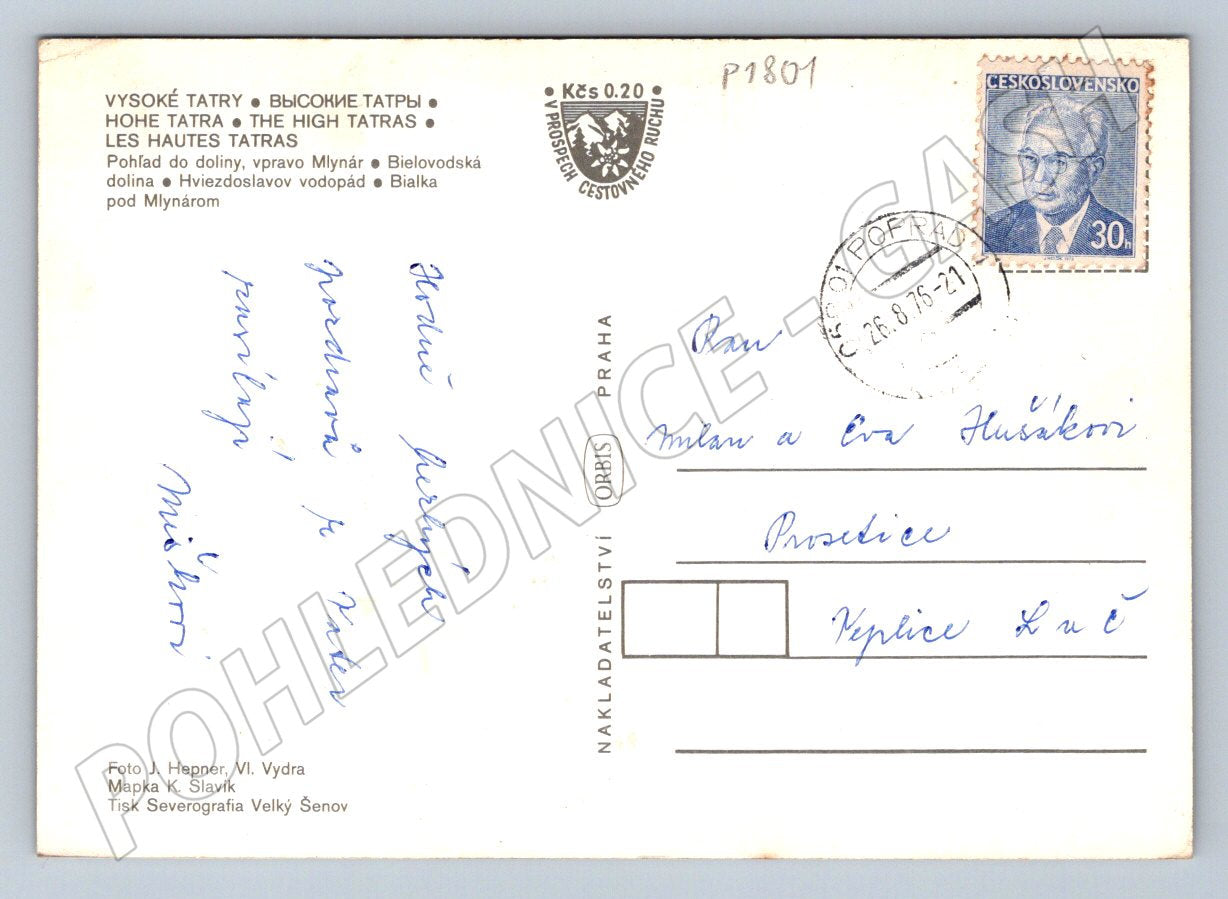 P1801
VYSOKÉ TATRY • ВЫСОКИЕ ТАТРЫ •
HOHE TATRA • THE HIGH TATRAS •
LES HAUTES TATRAS
Pohľad do doliny, vpravo Mlynár • Bielovodská
dolina • Hviezdoslavov vodopád • Bialka
pod Mlynárom
• Kčs 0.20 •
V PROSPECH CESTOVNÉHO RUCHU
ČESKOSLOVENSKO
30h
POPRAD
26.8.76-21
Hodně
pozdravů z Tater
posílají
NAKLADATELSTVÍ ORBIS PRAHA
Pan
Milan a Eva Hušákovi
Prosetice
Teplice L u Č
Foto J. Hepner, Vl. Vydra
Mapka K. Slavík
Tisk Severografia Velký Šenov
POHLEDNICE - GASH